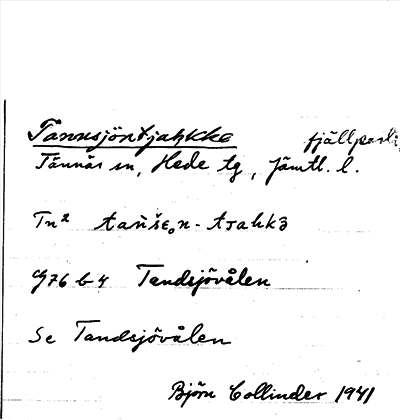 Tannsjöntjahkke fjällparti
Tännäs sn, Hede tg, Jämtl. l.
Tn² tańše̥n-tjahkȝ
G76 b 4 Tandsjövålen
Se Tandsjövålen
Björn Collinder 1941